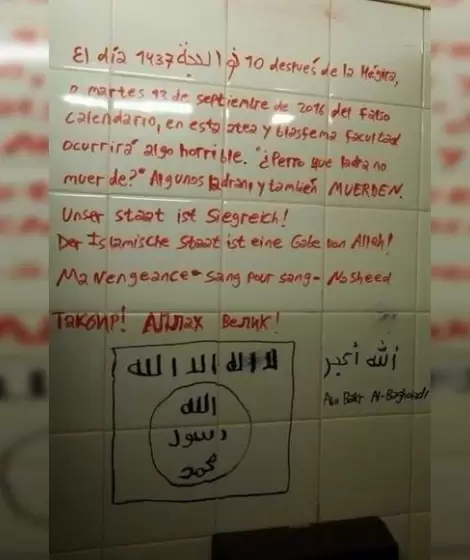 El día 1437 ذو الحجة 10 después de la Hégira,
o martes 13 de septiembre de 2016 del falso
calendario, en esta atea y blasfema facultad
ocurrirá algo horrible. "¿Perro que ladra no
muerde?" Algunos ladran y también MUERDEN.
Unser staat ist Siegreich!
Der Islamische Staat ist eine Gabe von Allah!
Ma Vengeance - Sang pour sang - Nasheed
Такбир! Аллах Велик!
لا اله الا الله
الله
رسول
محمد
الله أكبر
Abu Bakr Al-Baghdadi